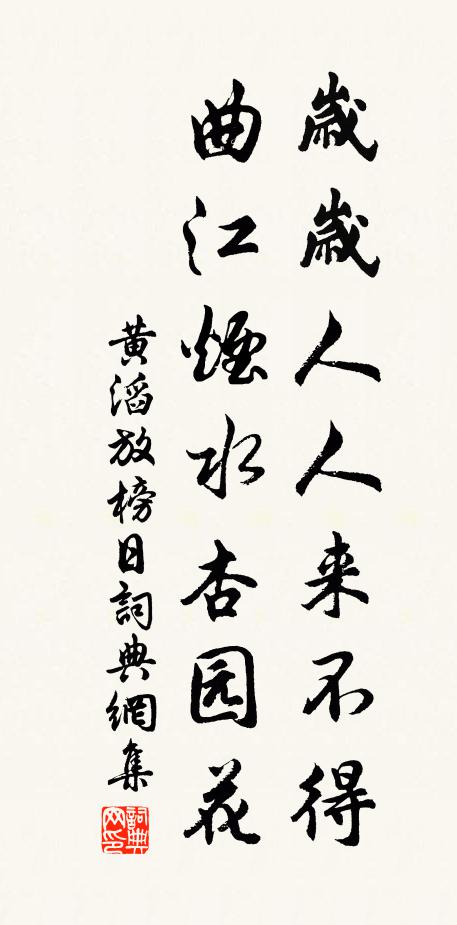 歲歲人人来不得
曲江煙水杏园花
黄滔放榜日詞典網集
詞典网印